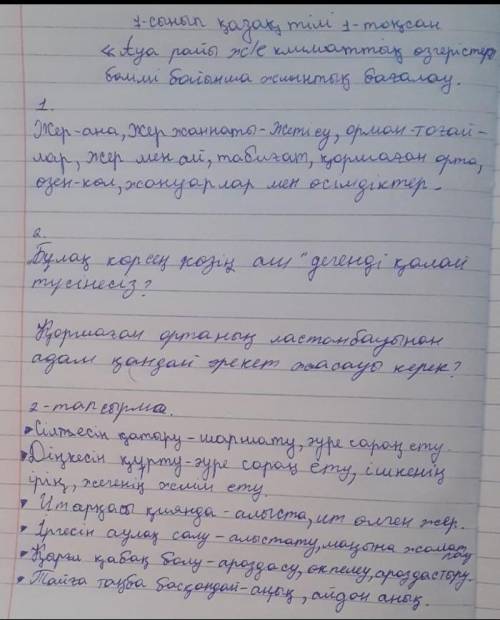 7-сынып қазақ тілі 1-тоқсан
«Ауа райы ж/е климаттық өзгерістер
бөлімі бойынша жиынтық бағалау.
1.
Жер-ана, Жер жаннаты-Жетісу, орман-тоғай-
лар, жер мен ай, табиғат, қоршаған орта,
өзен-көл, жануарлар мен өсімдіктер.
2.
Бұлақ көрсең көзің аш" дегенді қалай
түсінесіз?
Қоршаған ортаның ластанбауынан
адам қандай әрекет жасауы керек?
2-тапсырма.
• Сілтесін қатыру-шаршату, әуре сарсаң ету.
• Діңкесін құрту-әуре сарсаң ету, ішкенің
ірің, жегенің желім ету.
• Итарқасы қиянда-алыста, ит өлген жер.
• Іргесін аулақ салу-алыстату, маңына жолатпау
• Қырғи қабақ болу-араздасу, өкпелеу, араздастыру.
• Тайға таңба басқандай-ашық, айдан анық.